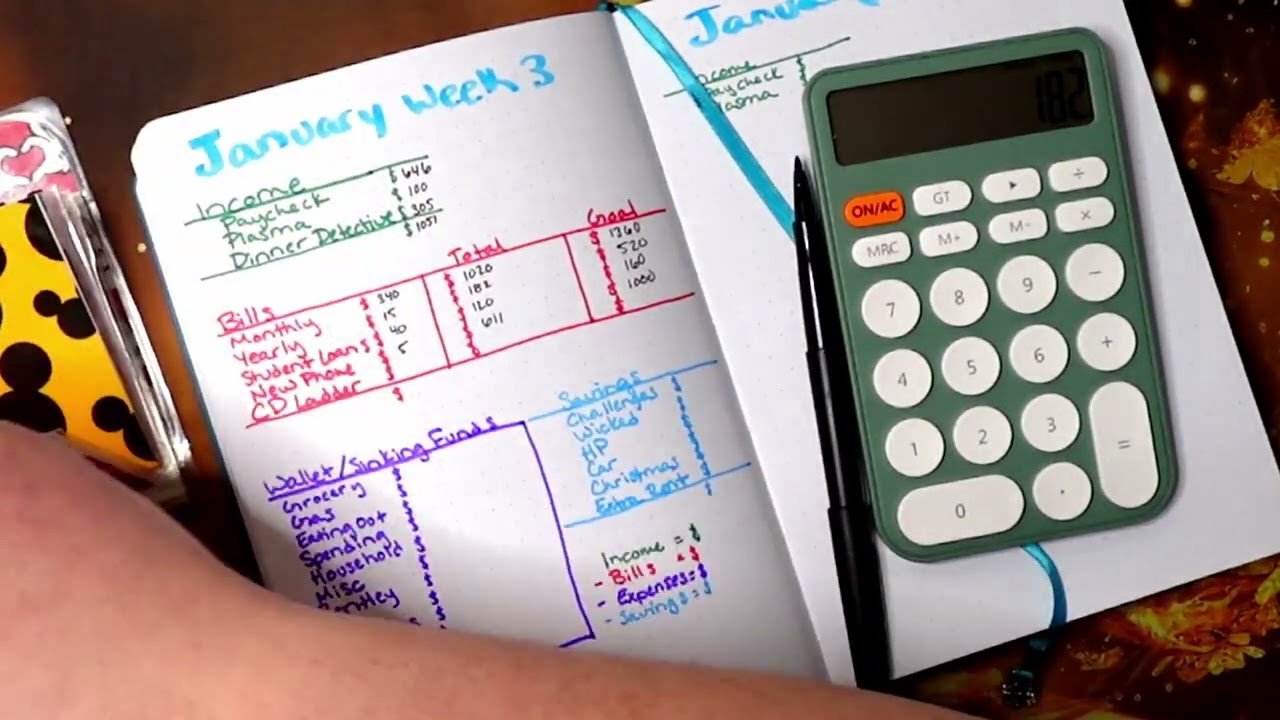 January Week 3
Income
Paycheck $ 646
Plasma $ 100
Dinner Detective $ 305
$ 1051
Bills Total Goal
Monthly $ 340 $ 1020 $ 1360
Yearly $ 15 $ 182 $ 520
Student Loans $ 40 $ 120 $ 160
New Phone $ 5 $ 611 $ 1000
CD Ladder $
Wallet/Sinking Funds
Grocery $
Gas $
Eating Out $
Spending $
Household $
Misc $
$
Savings $
Challenges $
Wicked $
HP $
Car $
Christmas $
Extra Rent $
Income = $
- Bills = $
- Expenses = $
- Savings = $
Income $
Paycheck $
Plasma
182
ON/AC GT ÷
MRC M+ M- ×
7 8 9 −
4 5 6 +
1 2 3 =
0 .